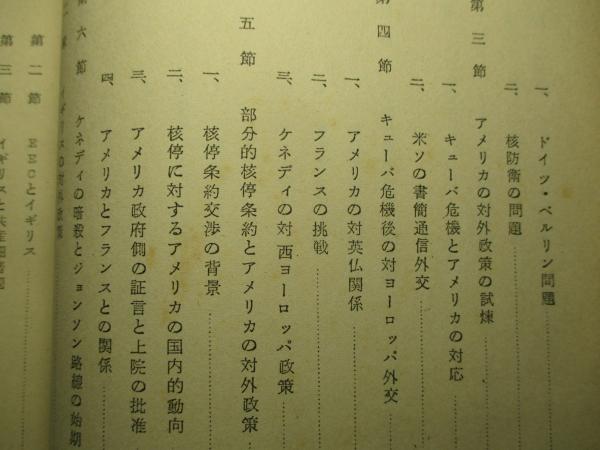 一、ドイツ・ベルリン問題
二、核防衛の問題
第三節 アメリカの対外政策の試煉
一、キューバ危機とアメリカの対応
二、米ソの書簡通信外交
第四節 キューバ危機後の対ヨーロッパ外交
一、アメリカの対英仏関係
二、フランスの挑戦
三、ケネディの対西ヨーロッパ政策
五節 部分的核停条約とアメリカの対外政策
一、核停条約交渉の背景
二、核停に対するアメリカの国内的動向
三、アメリカ政府側の証言と上院の批准
四、アメリカとフランスとの関係
第六節 ケネディの暗殺とジョンソン路線の始期
イギリスの対外政策
第二節 EECとイギリス
第三節 イギリスと共産圏諸国